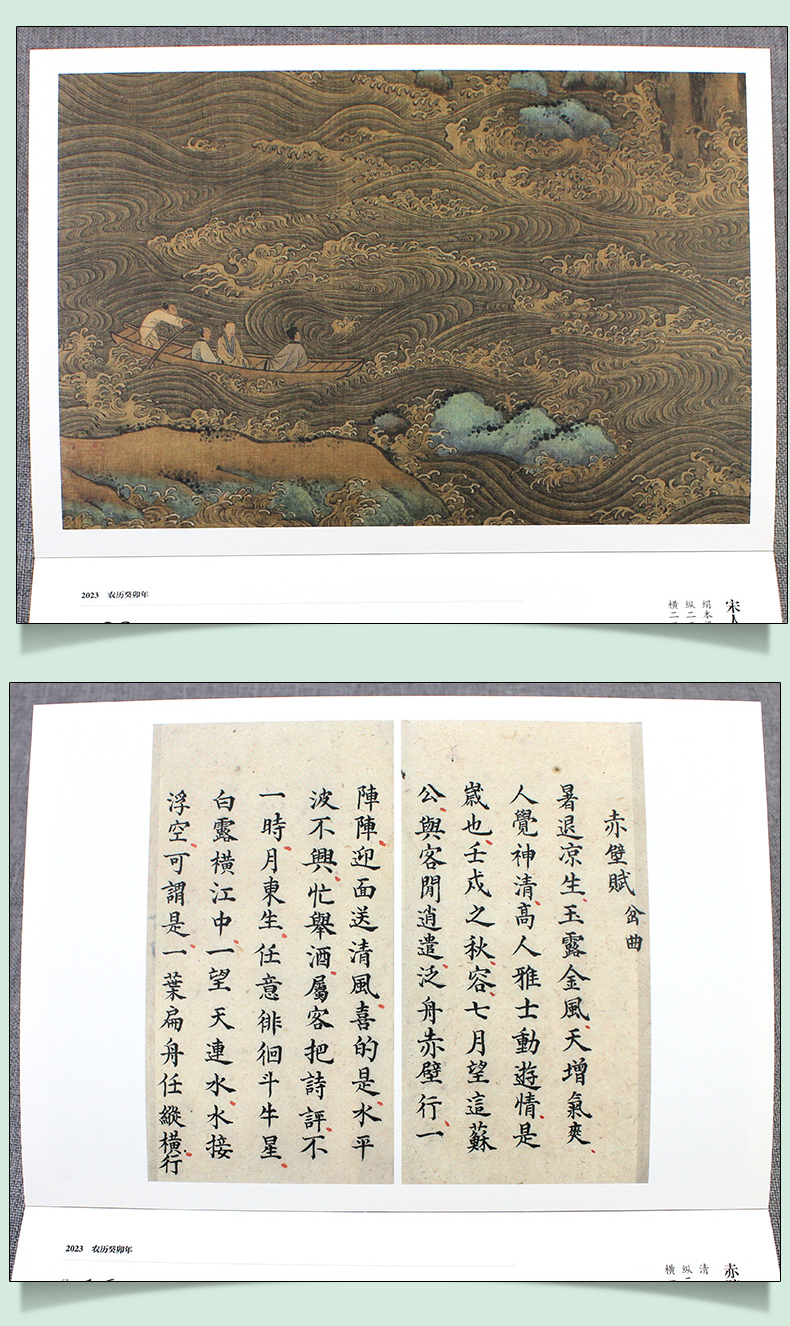 2023 农历癸卯年
宋人
绢本
纵二
横二
赤壁賦 岔曲
暑退凉生玉露金風天增氣爽
人覺神清高人雅士動遊情是
歲也壬戌之秋容七月望這蘇
公與客閒逍遣泛舟赤壁行一
陣陣迎面送清風喜的是水平
波不興忙舉酒屬客把詩評不
一時月東生任意徘徊斗牛星
白露橫江中一望天連水水接
浮空可謂是一葉扁舟任縱橫行
2023 农历癸卯年
赤
清
纵
横